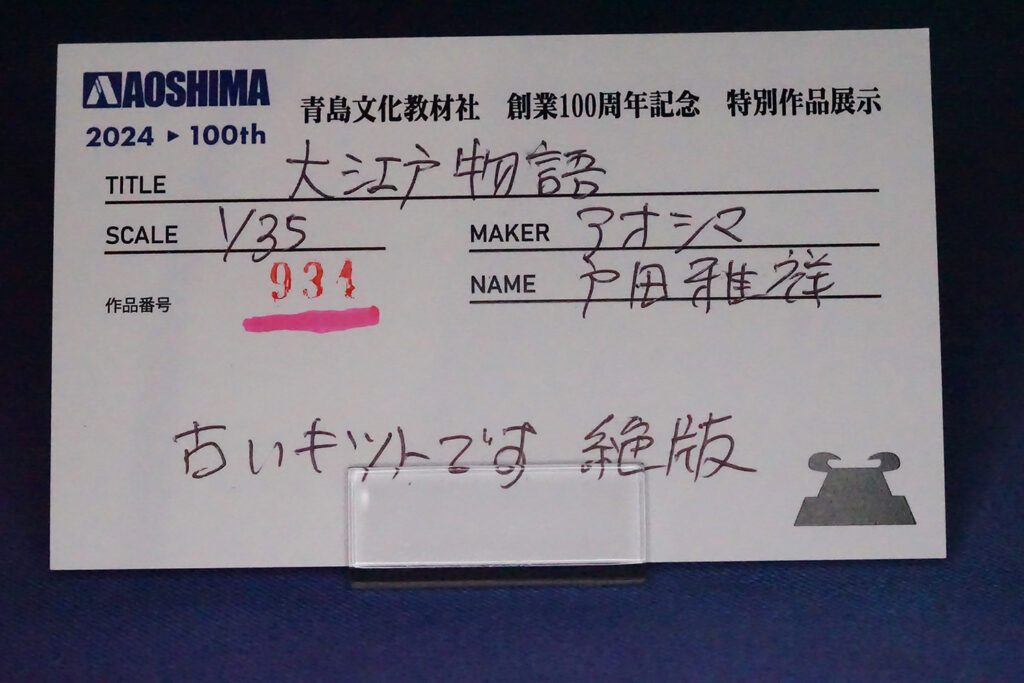 AOSHIMA
2024 ▶ 100th
青島文化教材社 創業100周年記念 特別作品展示
TITLE 大江戸物語
SCALE 1/35
MAKER アオシマ
作品番号 931
NAME 戸田雅祥
古いキットです 絶版